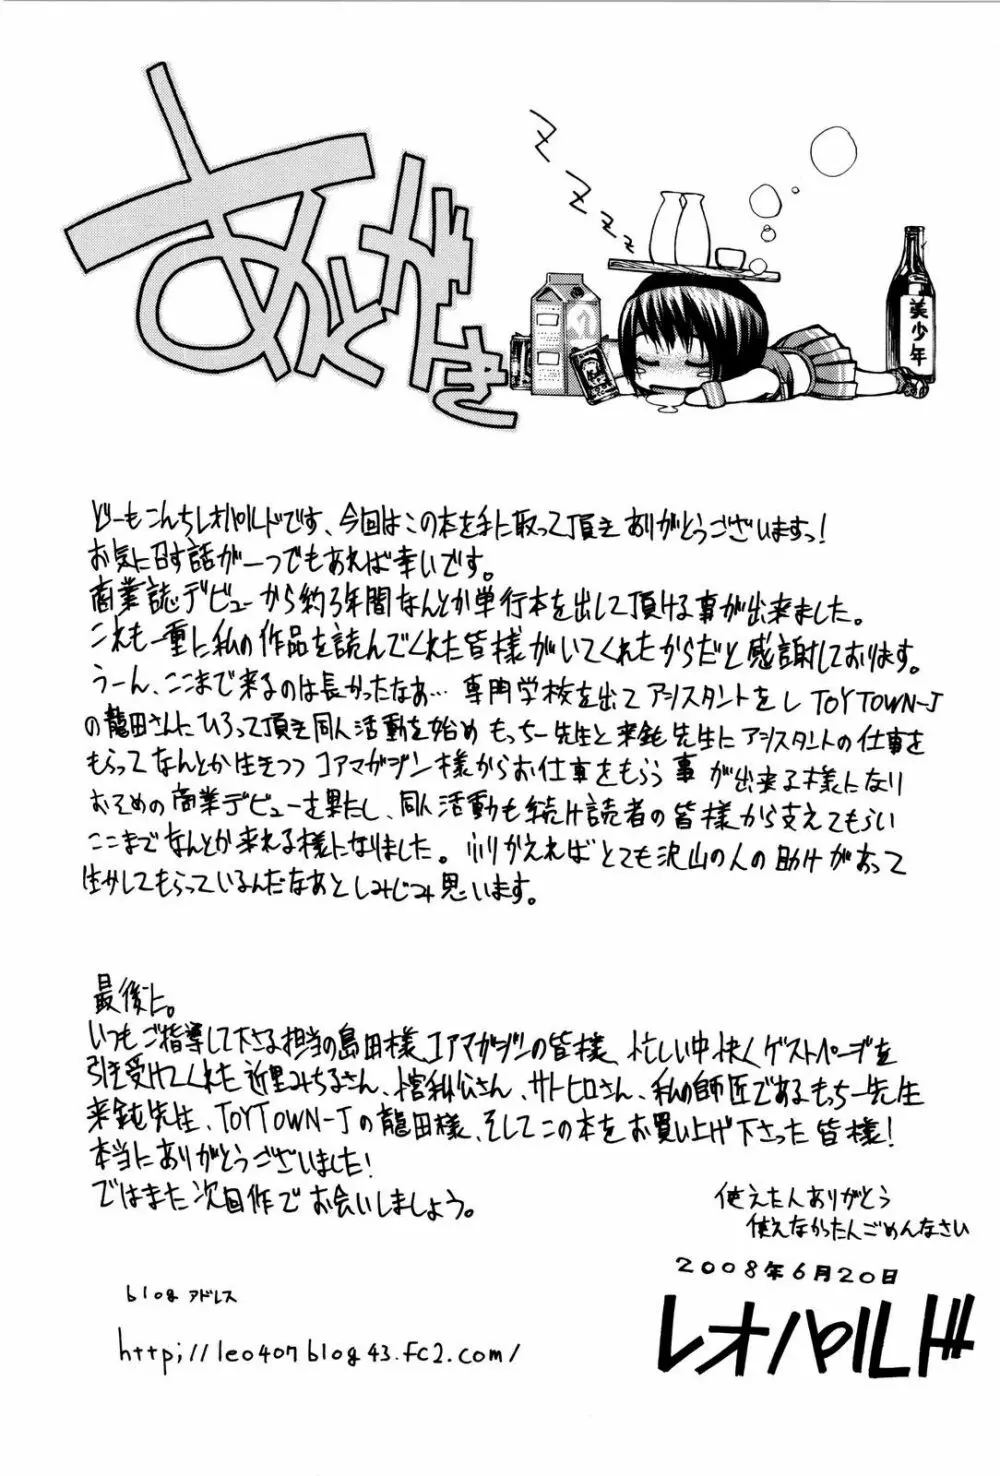 あとがき
美少年
どーもこんちレオパルドです、今回はこの本を手に取って頂きありがとうございますっ！
お気に召す話が一つでもあれば幸いです。
商業誌デビューから約3年間なんとか単行本を出して頂ける事が出来ました。
これも一重に私の作品を読んでくれた皆様がいてくれたからだと感謝しております。
うーん、ここまで来るのは長かったなぁ… 専門学校を出てアシスタントをし TOYTOWN-J
の龍田さんにひろって頂き同人活動を始め もっちー先生と来鈍先生にアシスタントの仕事を
もらってなんとか生きつつ コアマガジン様からお仕事をもらう事が出来る様になり
おそめの商業デビューを果たし、同人活動も続け読者の皆様から支えてもらい
ここまでなんとか来れる様になりました。ふりかえればとても沢山の人の助けがあって
生かしてもらっているんだなあとしみじみ思います。
最後に。
いつもご指導して下さる担当の島田様、コアマガジンの皆様、忙しい中快くゲストページを
引き受けてくれた 近里みちるさん、さん、サトヒロさん、私の師匠であるもっちー先生
来鈍先生、TOYTOWN-Jの龍田様、そしてこの本をお買い上げ下さった皆様！
本当にありがとうございました！
ではまた次回作でお会いしましょう。
使えたんありがとう
使えなかったんごめんなさい
2008年6月20日
レオパルド
blog アドレス
http;//leo407blog43.fc2.com/